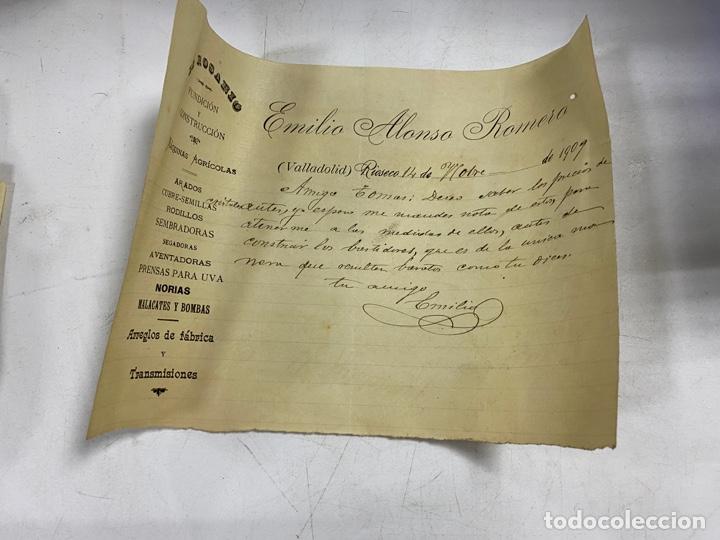 ROSARIO
FUNDICIÓN
Y
CONSTRUCCIÓN
MÁQUINAS AGRÍCOLAS
ARADOS
CUBRE-SEMILLAS
RODILLOS
SEMBRADORAS
SEGADORAS
AVENTADORAS
PRENSAS PARA UVA
NORIAS
MALACATES Y BOMBAS
Arreglos de fábrica
Y
Transmisiones
Emilio Alonso Romero
(Valladolid) Rioseco 14 de Nobre de 1909
Amigo Tomas: Deseo saber los precios de
antes, y espero me mandes nota de estos para
atenerme a las medidas de ellos, antes de
construir los bastidores, que es de la unica ma
nera que resulten baratos como tu dices.
tu amigo
Emilio
todocoleccion
todocoleccion.net